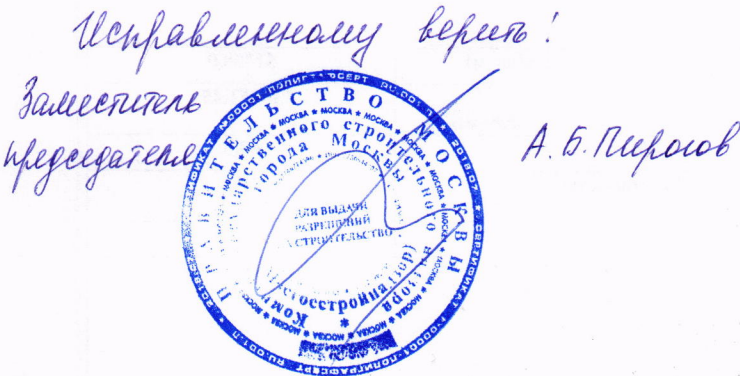 Исправленному верить!
Заместитель
председателя
А.Б. Пирогов
ПРАВИТЕЛЬСТВО МОСКВЫ
государственного строительного надзора
города Москвы
(Мосгосстройнадзор)
ДЛЯ ВЫДАЧИ
РАЗРЕШЕНИЙ
СТРОИТЕЛЬСТВО
МОСКВА ★ МОСКВА ★ МОСКВА
СЕРТИФИКАТ